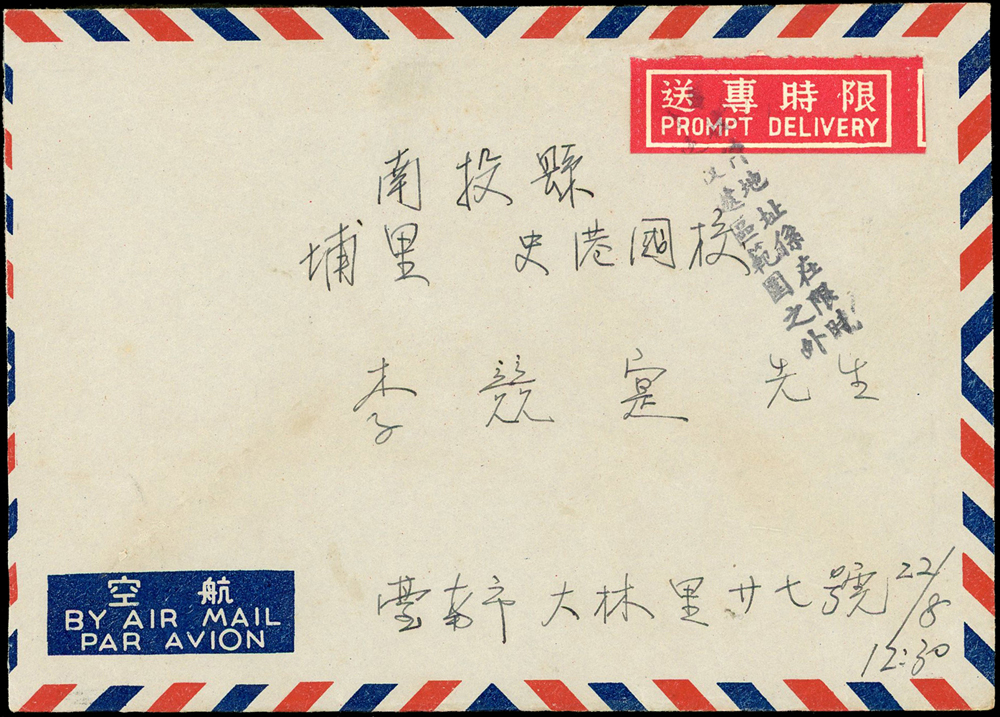 送專時限
PROMPT DELIVERY
南投縣
埔里 史港國校
李競寔 先生
地址係在限時
遞區範圍之外
空航
BY AIR MAIL
PAR AVION
臺南市大林里廿七號
22/8
12:30